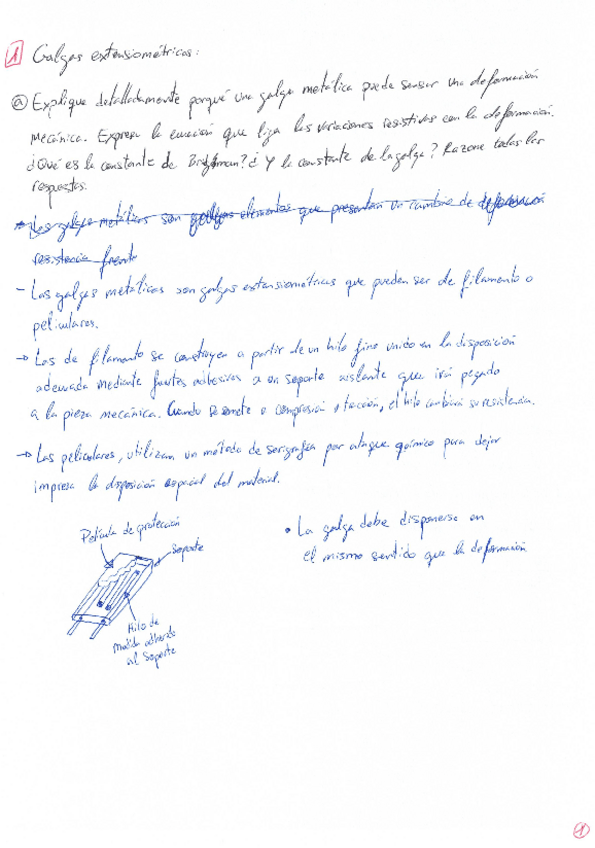 1 Galgas extensiométricas:
a Explique detalladamente porqué una galga metálica puede sensar una deformación
mecánica. Expresa la ecuación que liga las variaciones resistivas con la deformación.
¿Qué es la constante de Bridgman? ¿Y la constante de la galga? Razone todas las
respuestas.
Las galgas metálicas son galgas elementos que presentan un cambio de deformación
resistencia frente
- Las galgas metálicas son galgas extensiométricas que pueden ser de filamento o
peliculares.
→ Las de filamento se construyen a partir de un hilo fino unido en la disposición
adecuada mediante fuertes adhesivos a un soporte aislante que irá pegado
a la pieza mecánica. Cuando se somete a compresión o tracción, el hilo cambiará su resistencia.
→ Las peliculares, utilizan un método de serigrafía por ataque químico para dejar
impresa la disposición espacial del material.
Película de protección
Soporte
Hilo de
medida adherido
al Soporte
• La galga debe disponerse en
el mismo sentido que la deformación
1